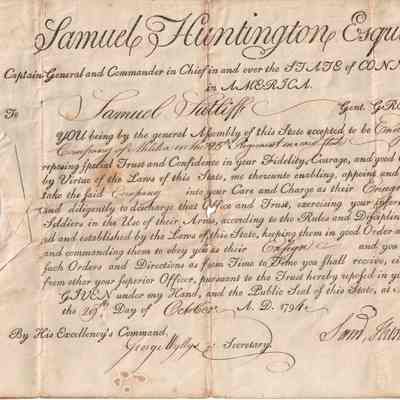 Samuel Huntington Esqu
Captain-General and Commander in Chief in and over the STATE of CONN
in AMERICA.
To Samuel Sutliff Gent. GR
YOU being by the general Assembly of this State accepted to be
Company of Militia in the 25th Regiment in said State
reposing special Trust and Confidence in your Fidelity, Courage, and good
by Virtue of the Laws of this State, me thereunto enabling, appoint and
take the said Company into your Care and Charge as their Ensign
and diligently to discharge that Office and Trust, exercising your
Soldiers in the Use of their Arms, according to the Rules and Discipline
d and established by the Laws of this State, keeping them in good Order a
and commanding them to obey you as their Ensign and you
such Orders and Directions as from Time to Time you shall receive,
from other your Superior Officer, pursuant to the Trust hereby reposed in y
GIVEN under my Hand, and the Public Seal of this State, at
the 29th Day of October A.D. 1794
By His Excellency's Command,
George Wyllys Secretary.
Saml Hun